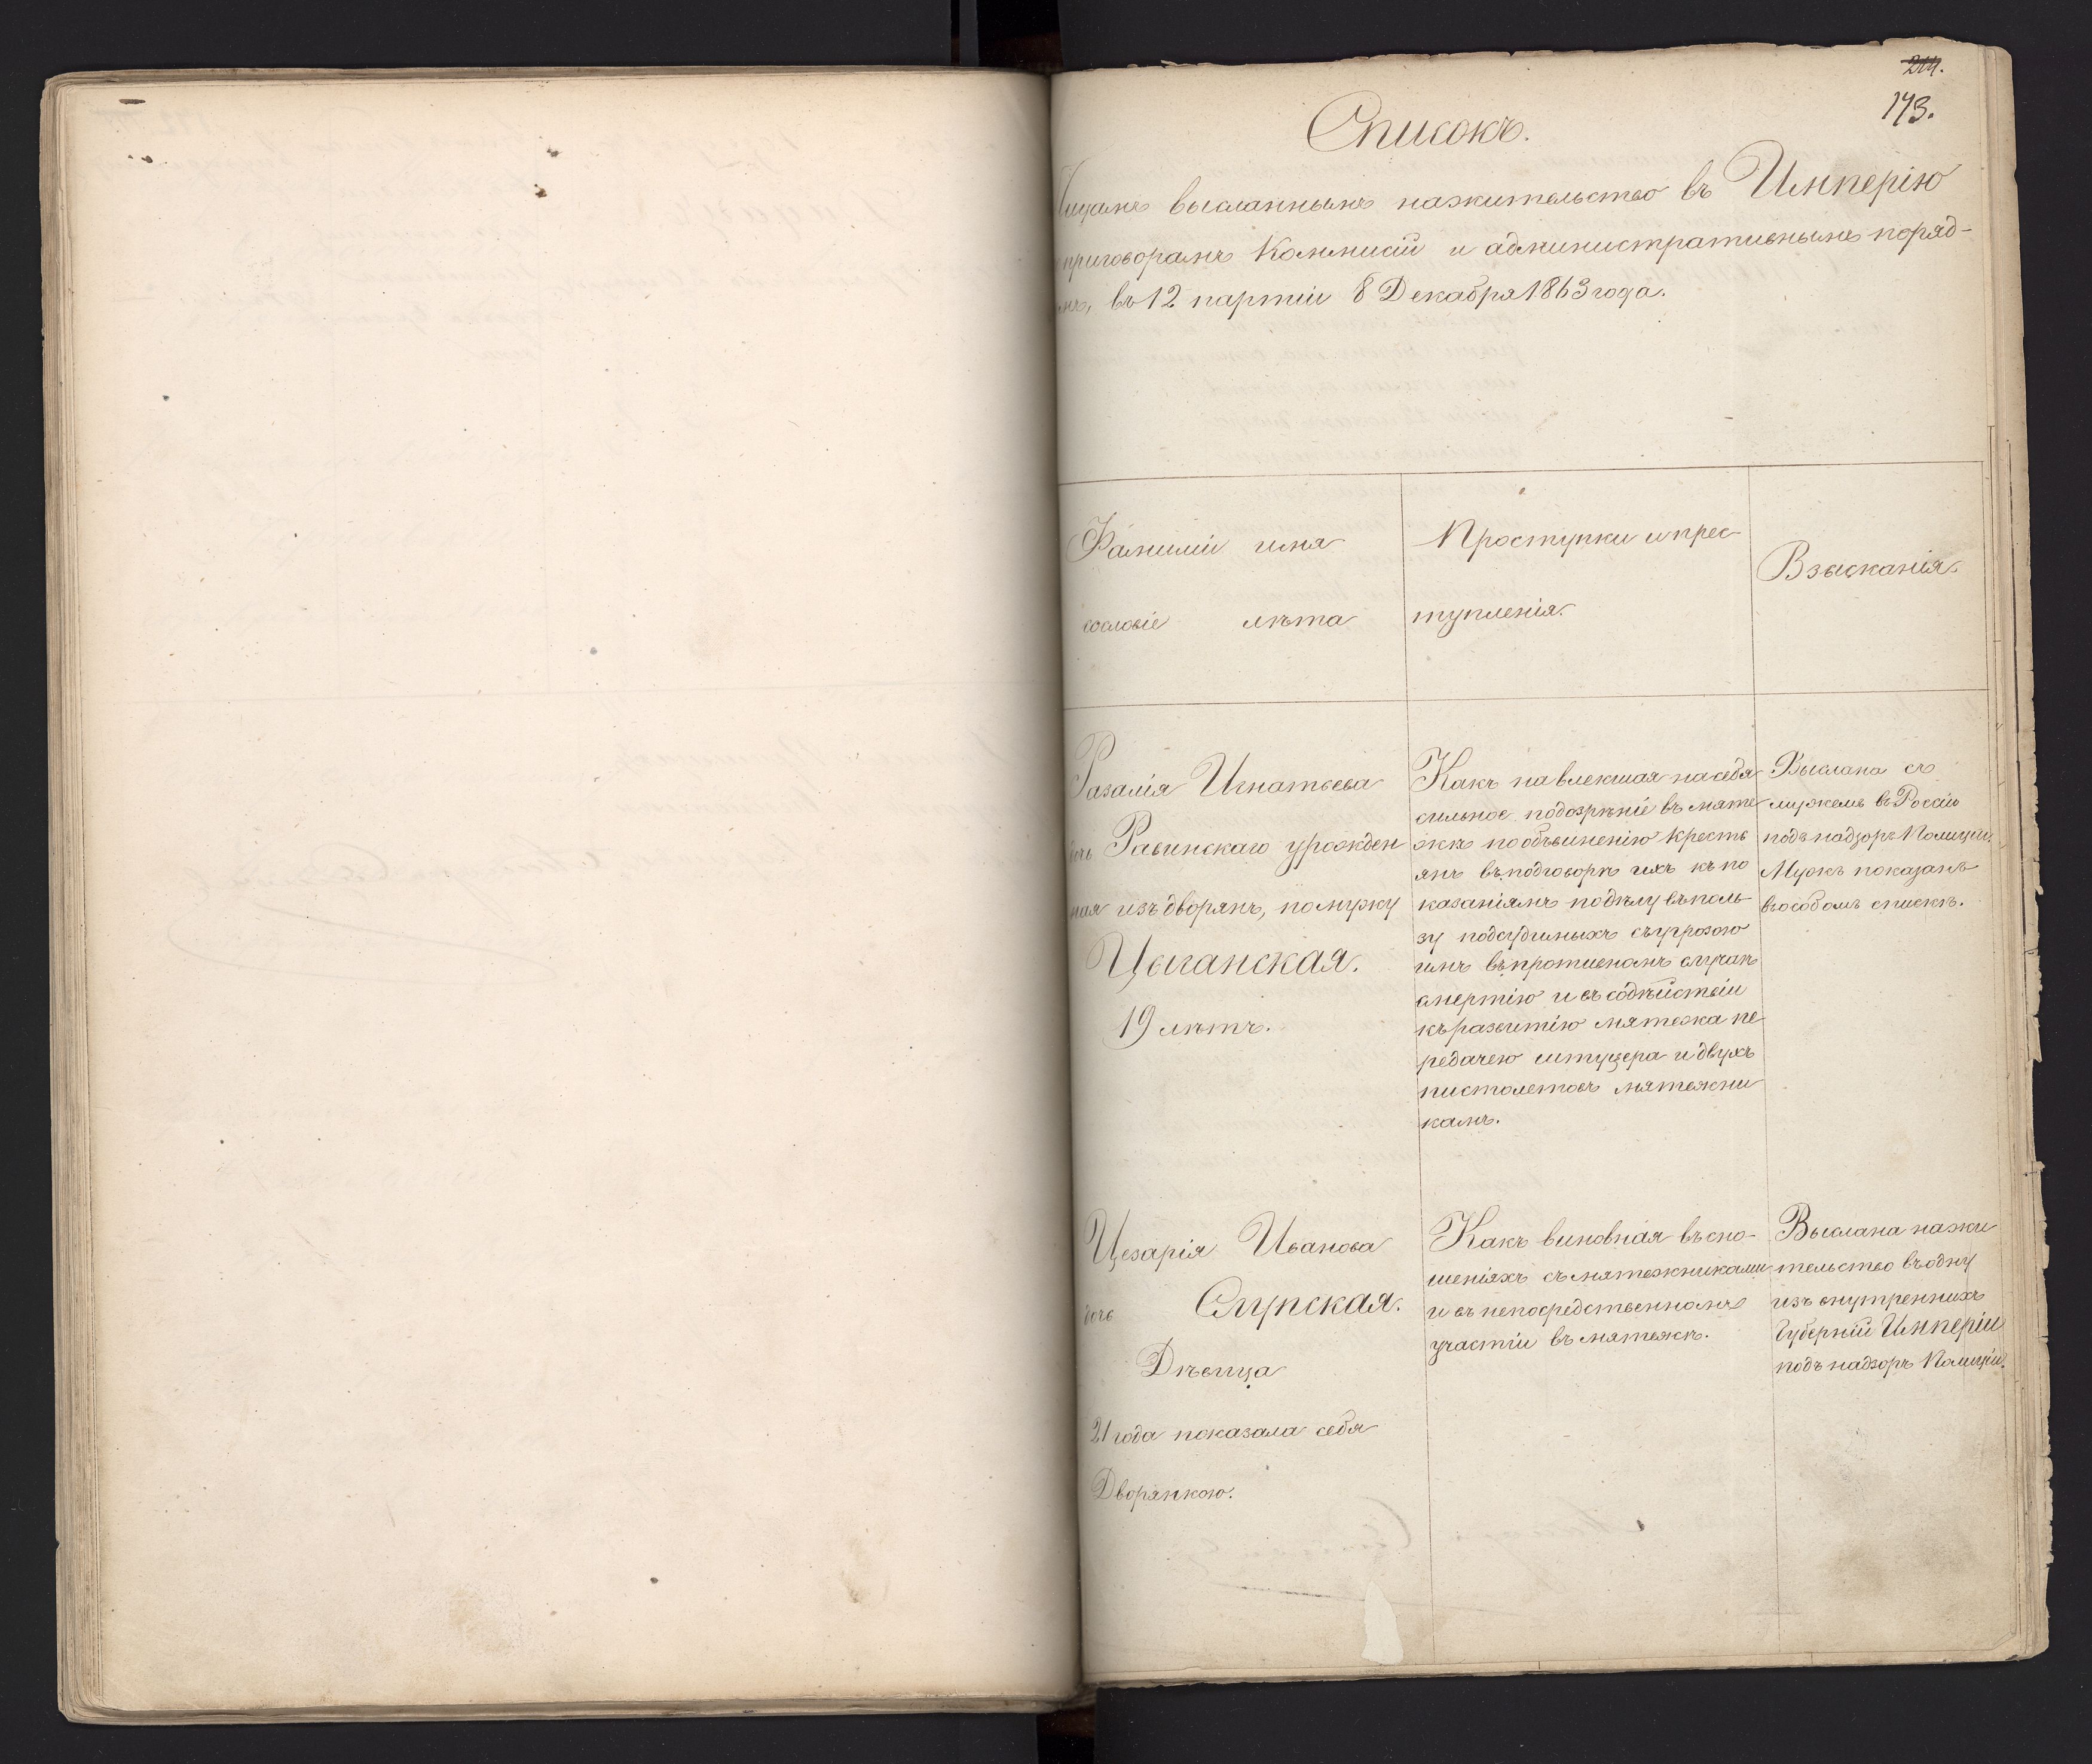 244.
173.
Списокъ.
Лицамъ высланнымъ нажительство въ Имперію
приговорамъ Коммисій и административнымъ поряд-
комъ, въ 12 партіи 8 Декабря 1863 года.
Фамиліи имя
сословіе лѣта
Проступки и прес
тупленія.
Взысканія.
Разалія Игнатьева
дочь Равинскаго урожден
ная изъ дворянъ, помужу
Цыганская.
19 лѣтъ.
Какъ навлекшая на себя
сильное подозрѣніе въ мяте
жѣ по объвиненію кресть
янъ въ подговорѣ ихъ къ по
казаніямъ по дѣлу въ поль
зу подсудимыхъ съ угрозою
имъ въ противномъ случаѣ
смертію и въ содѣйствіи
къ развитію мятежа пе
редачею штуцера и двухъ
пистолетовъ мятежни
камъ.
Выслана съ
мужемъ въ Россію
подъ надзоръ Полиціи.
Мужъ показанъ
въ особомъ спискѣ.
Цезарія Иванова
дочь Слупская.
Дѣвица
21 года показала себя
Дворянкою.
Какъ виновная въ сно-
шеніяхъ съ мятежниками
и въ непосредственномъ
участіи въ мятежѣ.
Выслана на жи
тельство въ одну
изъ внутреннихъ
Губерній Имперіи
подъ надзоръ Полиціи.